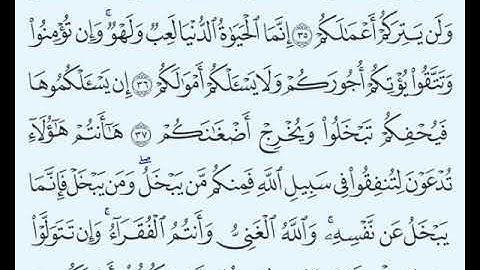 وَلَن يَتِرَكُمْ أَعْمَـٰلَكُمْ ۝٣٥ إِنَّمَا ٱلْحَيَوٰةُ ٱلدُّنْيَا لَعِبٌ وَلَهْوٌ ۚ وَإِن تُؤْمِنُوا۟
وَتَتَّقُوا۟ يُؤْتِكُمْ أُجُورَكُمْ وَلَا يَسْـَٔلْكُمْ أَمْوَٰلَكُمْ ۝٣٦ إِن يَسْـَٔلْكُمُوهَا
فَيُحْفِكُمْ تَبْخَلُوا۟ وَيُخْرِجْ أَضْغَـٰنَكُمْ ۝٣٧ هَـٰٓأَنتُمْ هَـٰٓؤُلَآءِ
تُدْعَوْنَ لِتُنفِقُوا۟ فِى سَبِيلِ ٱللَّهِ فَمِنكُم مَّن يَبْخَلُ ۖ وَمَن يَبْخَلْ فَإِنَّمَا
يَبْخَلُ عَن نَّفْسِهِۦ ۚ وَٱللَّهُ ٱلْغَنِىُّ وَأَنتُمُ ٱلْفُقَرَآءُ ۚ وَإِن تَتَوَلَّوْا۟